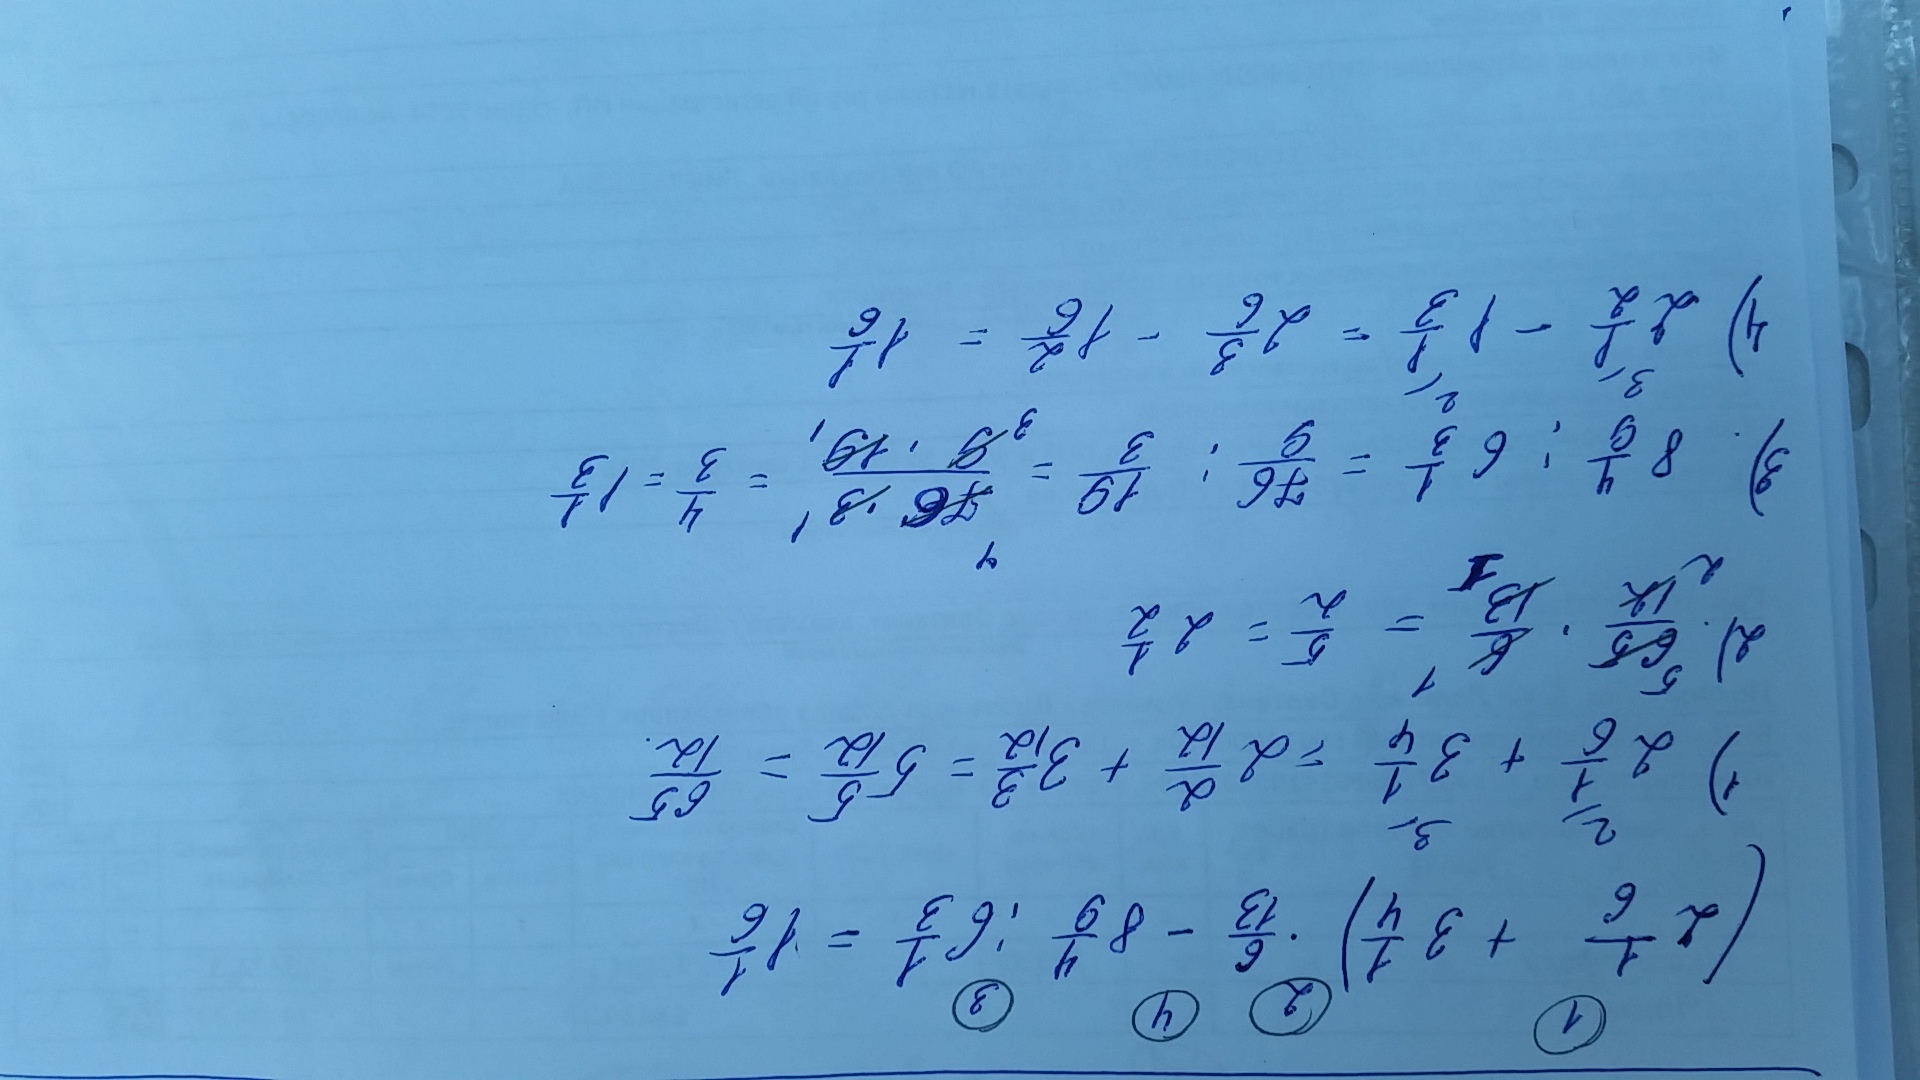 ① ② ④ ③
(2 1/6 + 3 1/4) · 6/13 - 8 4/9 : 6 1/3 = 1 1/6
1) 2 1/6 + 3 1/4 = 2 2/12 + 3 3/12 = 5 5/12 = 65/12
2) 65/12 · 6/13 = 5/2 = 2 1/2
3) 8 4/9 : 6 1/3 = 76/9 : 19/3 = 76 · 3 / 9 · 19 = 4/3 = 1 1/3
4) 2 1/2 - 1 1/3 = 2 3/6 - 1 2/6 = 1 1/6